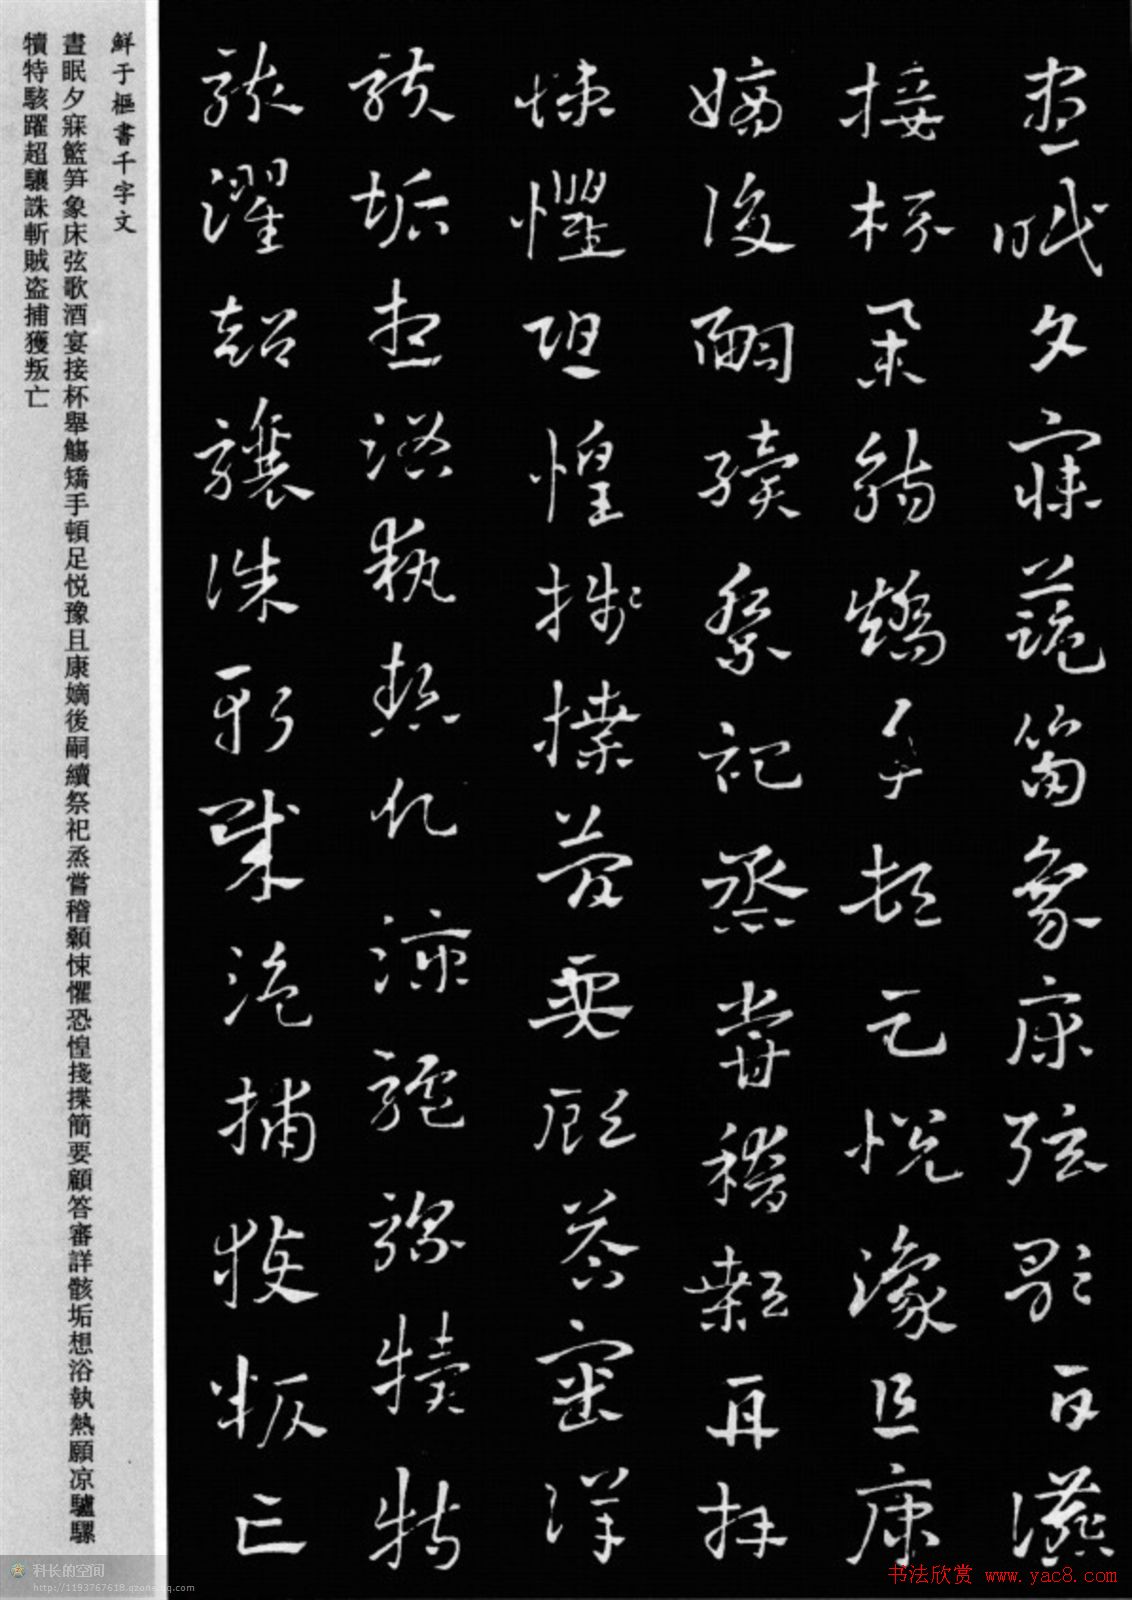 畫眠夕寐藍笋象床弦歌酒讌
接杯舉觴矯手頓足悅豫且康
嫡後嗣續祭祀烝嘗稽顙再拜
悚懼恐惶牋牒簡要顧答審詳
骸垢想浴執熱願涼驢騾犢特
駭躍超驤誅斬賊盜捕獲叛亡
鮮于樞書千字文
晝眠夕寐籃笋象床弦歌酒宴接杯舉觴矯手頓足悦豫且康嫡後嗣續祭祀烝嘗稽顙悚懼恐惶牋揲簡要顧答審詳骸垢想浴執熱願凉驢騾
犢特駭躍超驤誅斬賊盗捕獲叛亡
科长的空间
http://1193767618.qzone.qq.com
书法欣赏 www.yac8.com